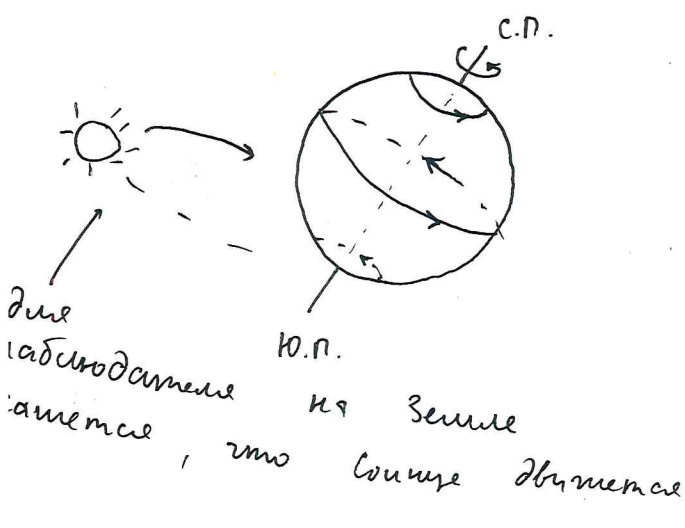 С.П.
Ю.П.
для
аблюдателя на Земле
ажется, что Солнце движется